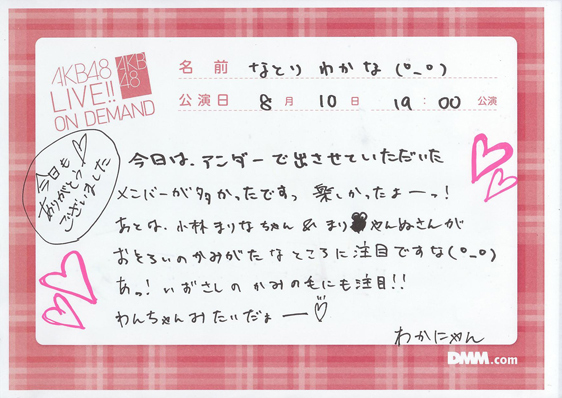 AKB48
LIVE!!
ON DEMAND
AKB
48
名前 なとり わかな (°_°)
公演日 8月 10日 19:00 公演
今日も♡
ありがとう
ございました
今日は、アンダーで出させていただいた
メンバーが多かったですっ 楽しかったよーっ!
あとは、小林まりなちゃん & まり ゃんぬさんが
おそろいのかみがたなところに注目ですな(°_°)
あっ! いずさしのかみの毛にも注目!!
わんちゃんみたいだよー♡
わかにゃん
DMM.com